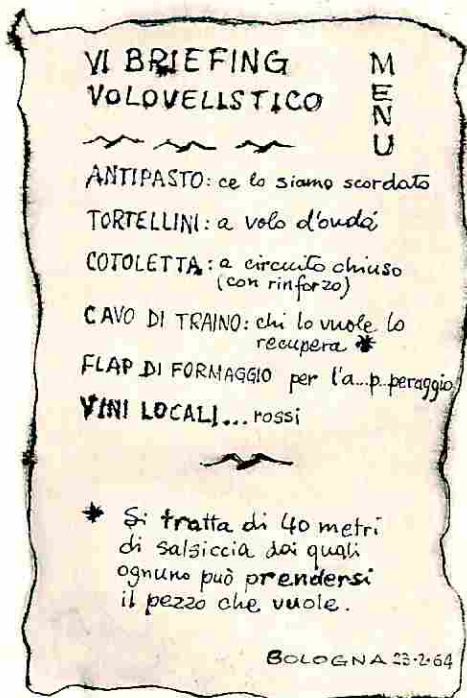 VI BRIEFING
VOLOVELISTICO
MENU
ANTIPASTO: ce lo siamo scordato
TORTELLINI: a volo d'onda
COTOLETTA: a circuito chiuso
(con rinforzo)
CAVO DI TRAINO: chi lo vuole lo
recupera *
FLAP DI FORMAGGIO per l'a...p.peraggio
VINI LOCALI... rossi
* Si tratta di 40 metri
di salsiccia dai quali
ognuno può prendersi
il pezzo che vuole.
BOLOGNA 23-2-64